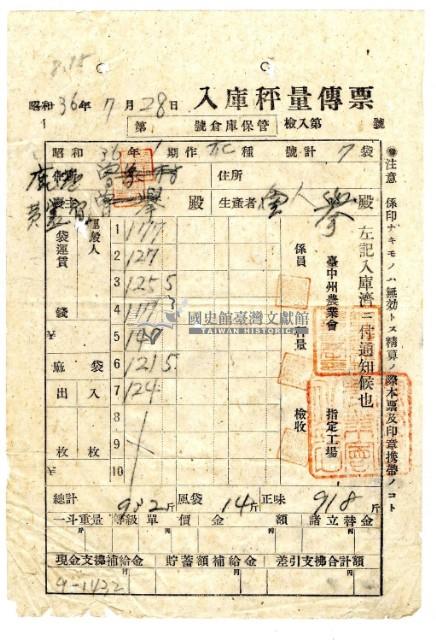 8.15
入庫秤量傳票
昭和36年7月28日
第 號倉庫保管 檢入第 號
昭和36年1期作 種 號計7袋
住所
殿 生產者 殿
運搬人
袋運賃
錢
麻袋
出入
枚 枚
1 177
2 127
3 125.5
4
5
6 121.5
7 124
8
9
10
左記入庫濟ニ付通知候也
臺中州農業會
指定工場
係員
秤量
檢收
注意 係印ナキモノハ無効トス精算ノ際本票及印章携帶ノコト
國史館臺灣文獻館
TAIWAN HISTORICA
總計 932斤 風袋 14斤 正味 918斤
一斗重量 等級 單價 金額 諸立替金
現金支拂補給金 貯蓄額補給金 差引支拂合計額
9-1432